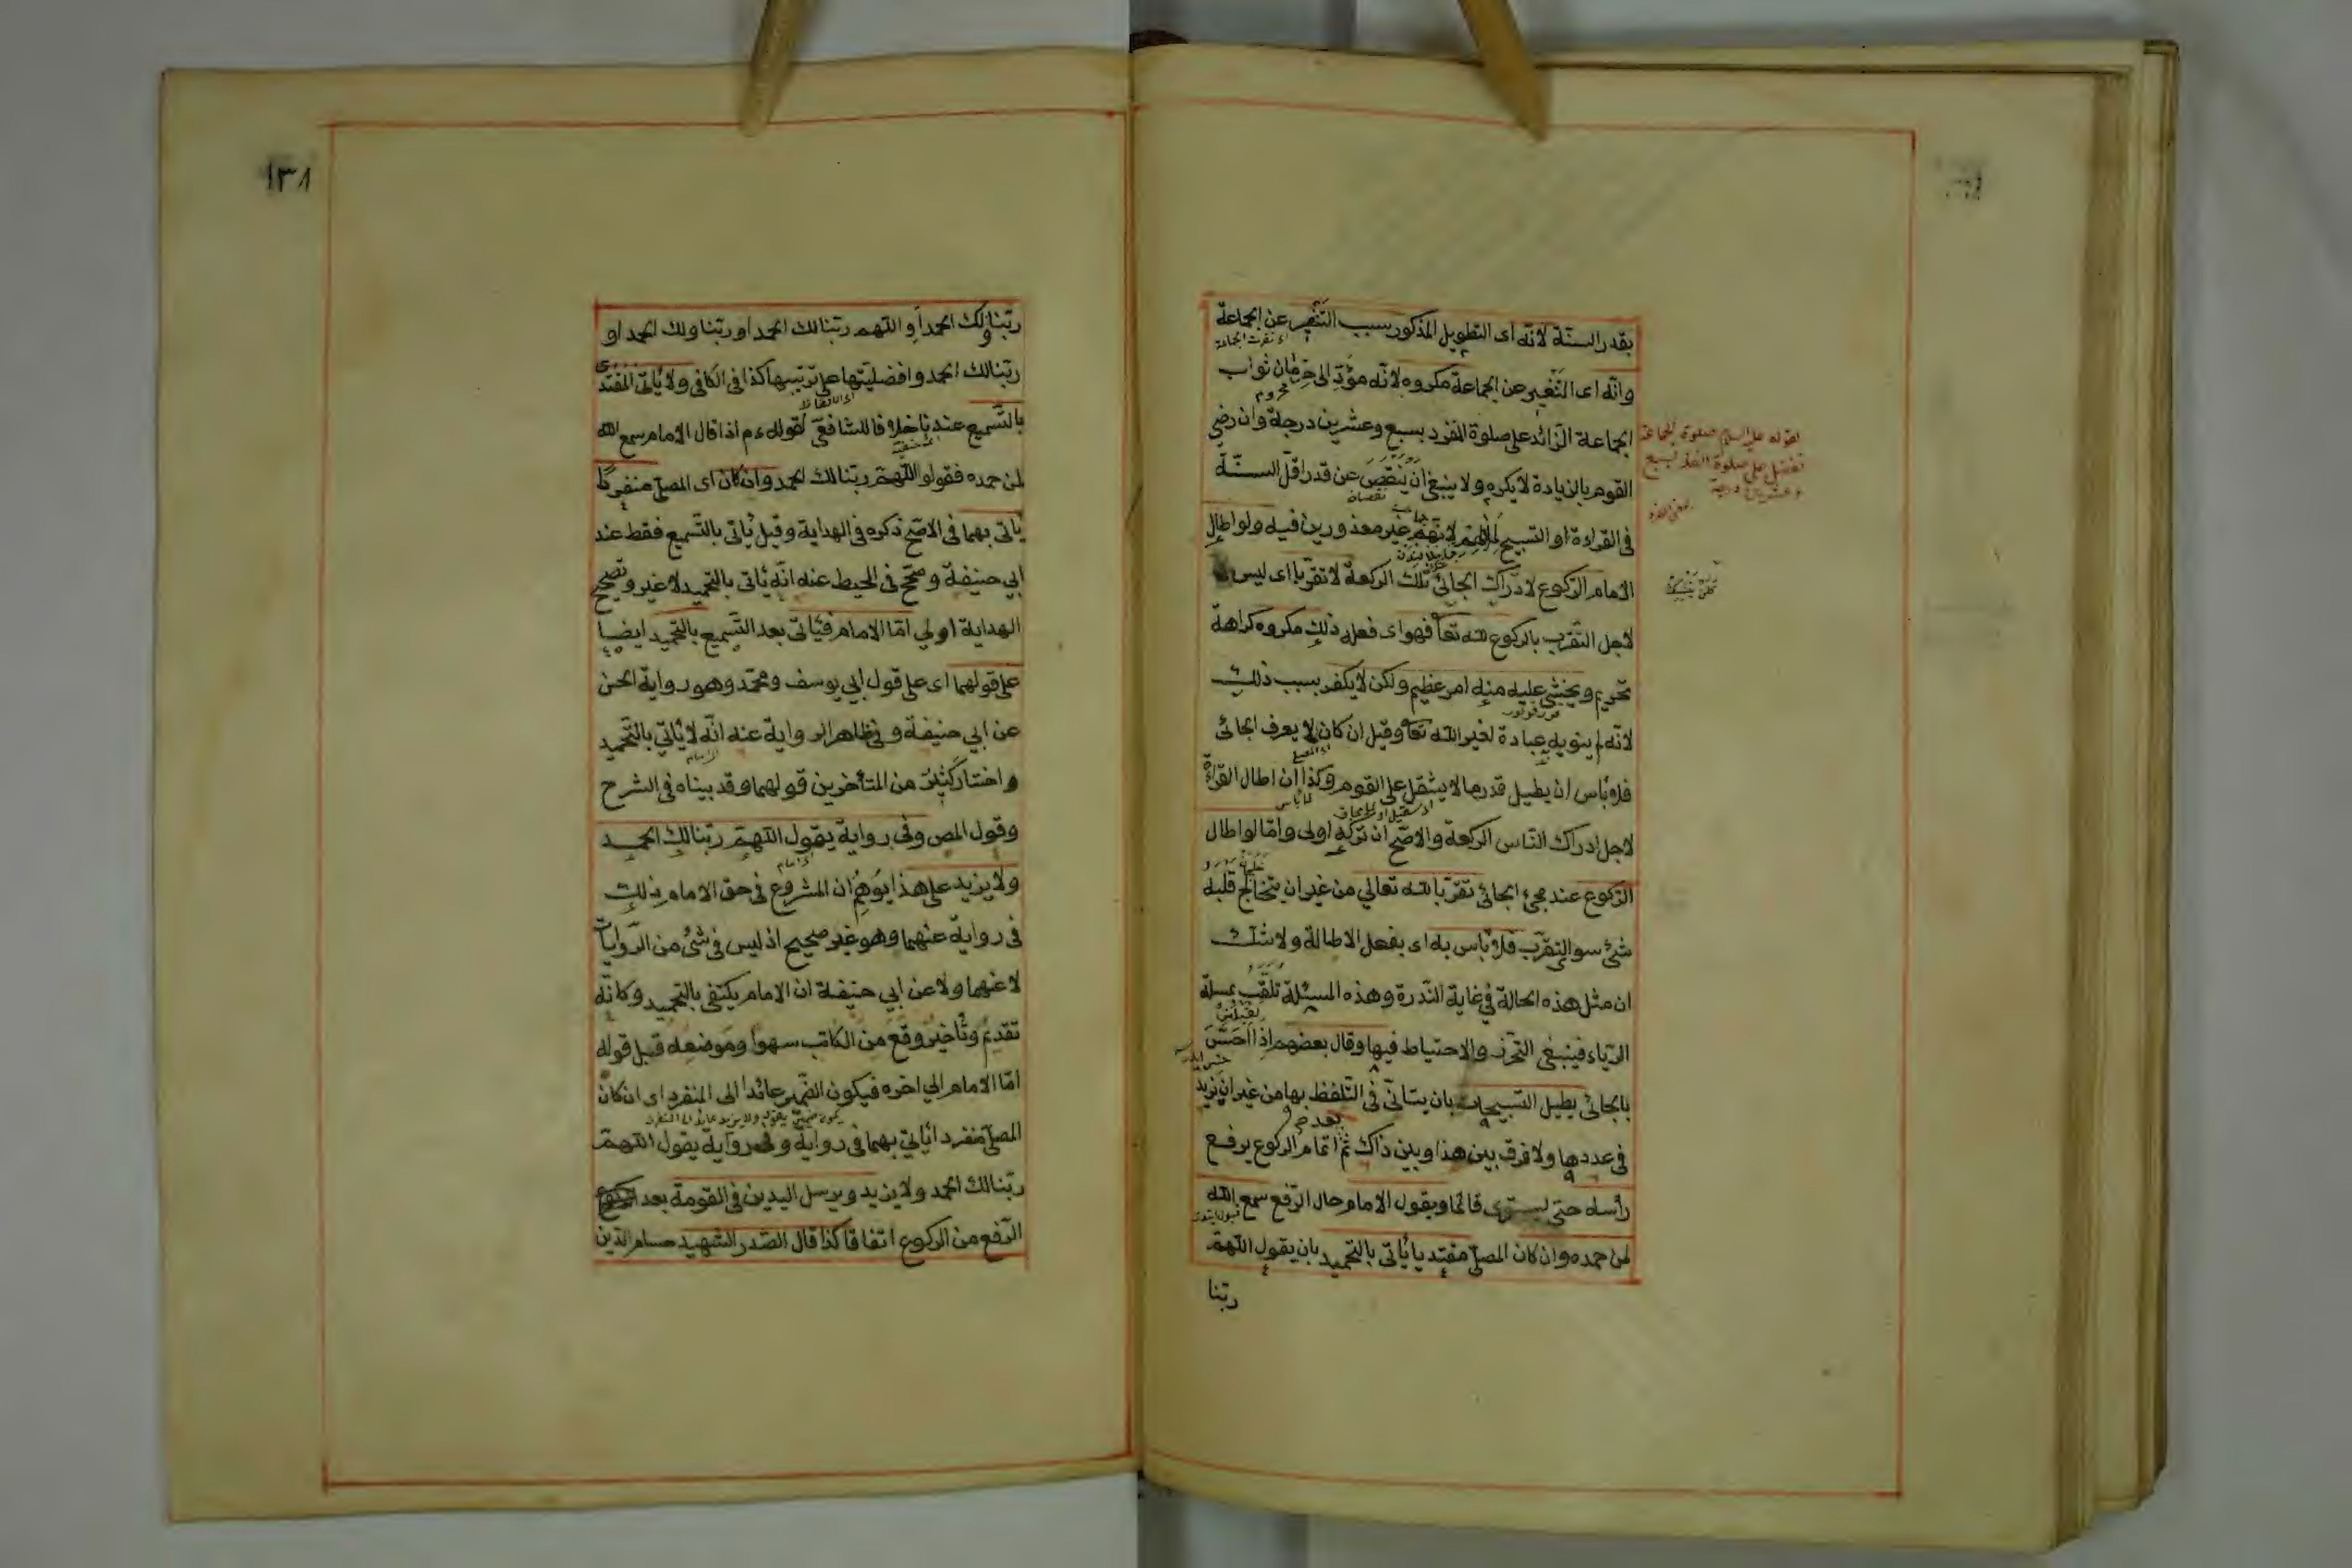 بقدر السنّة لانّه اى التطويل المذكور بسبب التنفير عن الجماعة
وانّه اى التنفير عن الجماعة مكروه لانّه مؤدّ الى حرمان ثواب
محروم
الجماعة الزائد على صلوة الفرد بسبع وعشرين درجة وان رضى
القوم بالزيادة لا يكره ولا ينبغى ان ينقص عن قدر اقلّ السنّة
نقصان
فى القراءة او التسبيح لملالهم لانّهم غير معذورين فيه ولو اطال
الامام الركوع لادراك الجائى تلك الركعة لا تقرّبا اى ليس
لاجل التقرّب بالركوع لله تعا فهو اى فعله ذلك مكروه كراهة
تحريم ويخشى عليه منه امر عظيم ولكن لا يكفر بسبب ذلك
لانّه لم ينو به عبادة لغير الله تعا وقيل ان كان لا يعرف الجائى
فلا بأس ان يطيل قدر ما لا يثقل على القوم وكذا ان اطال القراءة
لاجل ادراك النّاس الركعة والاصحّ ان تركه اولى وامّا لو اطال
الركوع عند مجئ الجائى تقرّبا لله تعالى من غير ان يتخالج قلبه
شئ سوى التقرّب فلا بأس به اى بفعل الاطالة ولا شكّ
ان مثل هذه الحالة فى غاية النّدرة وهذه المسئلة تلقّب بمسئلة
الرّياء فينبغى التحرّز والاحتياط فيها وقال بعضهم اذا احسّ
بالجائى يطيل التسبيحات بان يتأنّى فى التلفّظ بها من غير ان يزيد
فى عددها ولا فرق بين هذا وبين ذاك ثمّ اتمام الركوع يرفع
بعد صح
رأسه حتى يستوى قائما ويقول الامام حال الرّفع سمع الله
لمن حمده وان كان المصلّى مقتديا يأتى بالتحميد بان يقول اللهمّ
ربّنا
لقوله عليه السلام صلوة الجماعة
تفضل على صلوة الفذ بسبع
وعشرين درجة
١٣٨
ربّنا ولك الحمد او اللهم ربّنا لك الحمد او ربّنا ولك الحمد او
ربّنا لك الحمد وافضليتها على ترتيبها كذا فى الكافى ولا يأتى المقتدى
بالتّسميع عندنا خلافا للشافعىّ لقوله ءم اذا قال الامام سمع الله
لمن حمده فقولوا اللهمّ ربّنا لك الحمد وان كان اى المصلّى منفردا
يأتى بهما فى الاصحّ ذكره فى الهداية وقيل يأتى بالتّسميع فقط عند
ابى حنيفة وصحّح فى المحيط عنه انّه يأتى بالتحميد لا غير وتصحيح
الهداية اولى امّا الامام فيأتى بعد التّسميع بالتحميد ايضا
على قولهما اى على قول ابى يوسف ومحمّد وهو رواية الحسن
عن ابى حنيفة وفى ظاهر الرواية عنه انّه لا يأتى بالتّحميد
الامام
واختار كثير من المتأخرين قولهما وقد بيناه فى الشرح
وقول المص وفى رواية يقول اللهمّ ربّنا لك الحمد
ولا يزيد على هذا يوهم ان المشروع فى حق الامام ذلك
فى رواية عنهما وهو غير صحيح اذ ليس فى شئ من الرّوايات
لا عنهما ولا عن ابى حنيفة ان الامام يكتفى بالتحميد وكانّه
تقديم وتأخير وقع من الكاتب سهوا وموضعه قبل قوله
امّا الامام الى اخره فيكون الضمير عائدا الى المنفرد اى ان كان
المصلّى منفردا يأتى بهما فى رواية وفى رواية يقول اللهمّ
ربّنا لك الحمد ولا يزيد ويرسل اليدين فى القومة بعد
الرّفع من الركوع اتفاقا كذا قال الصّدر الشهيد حسام الدين